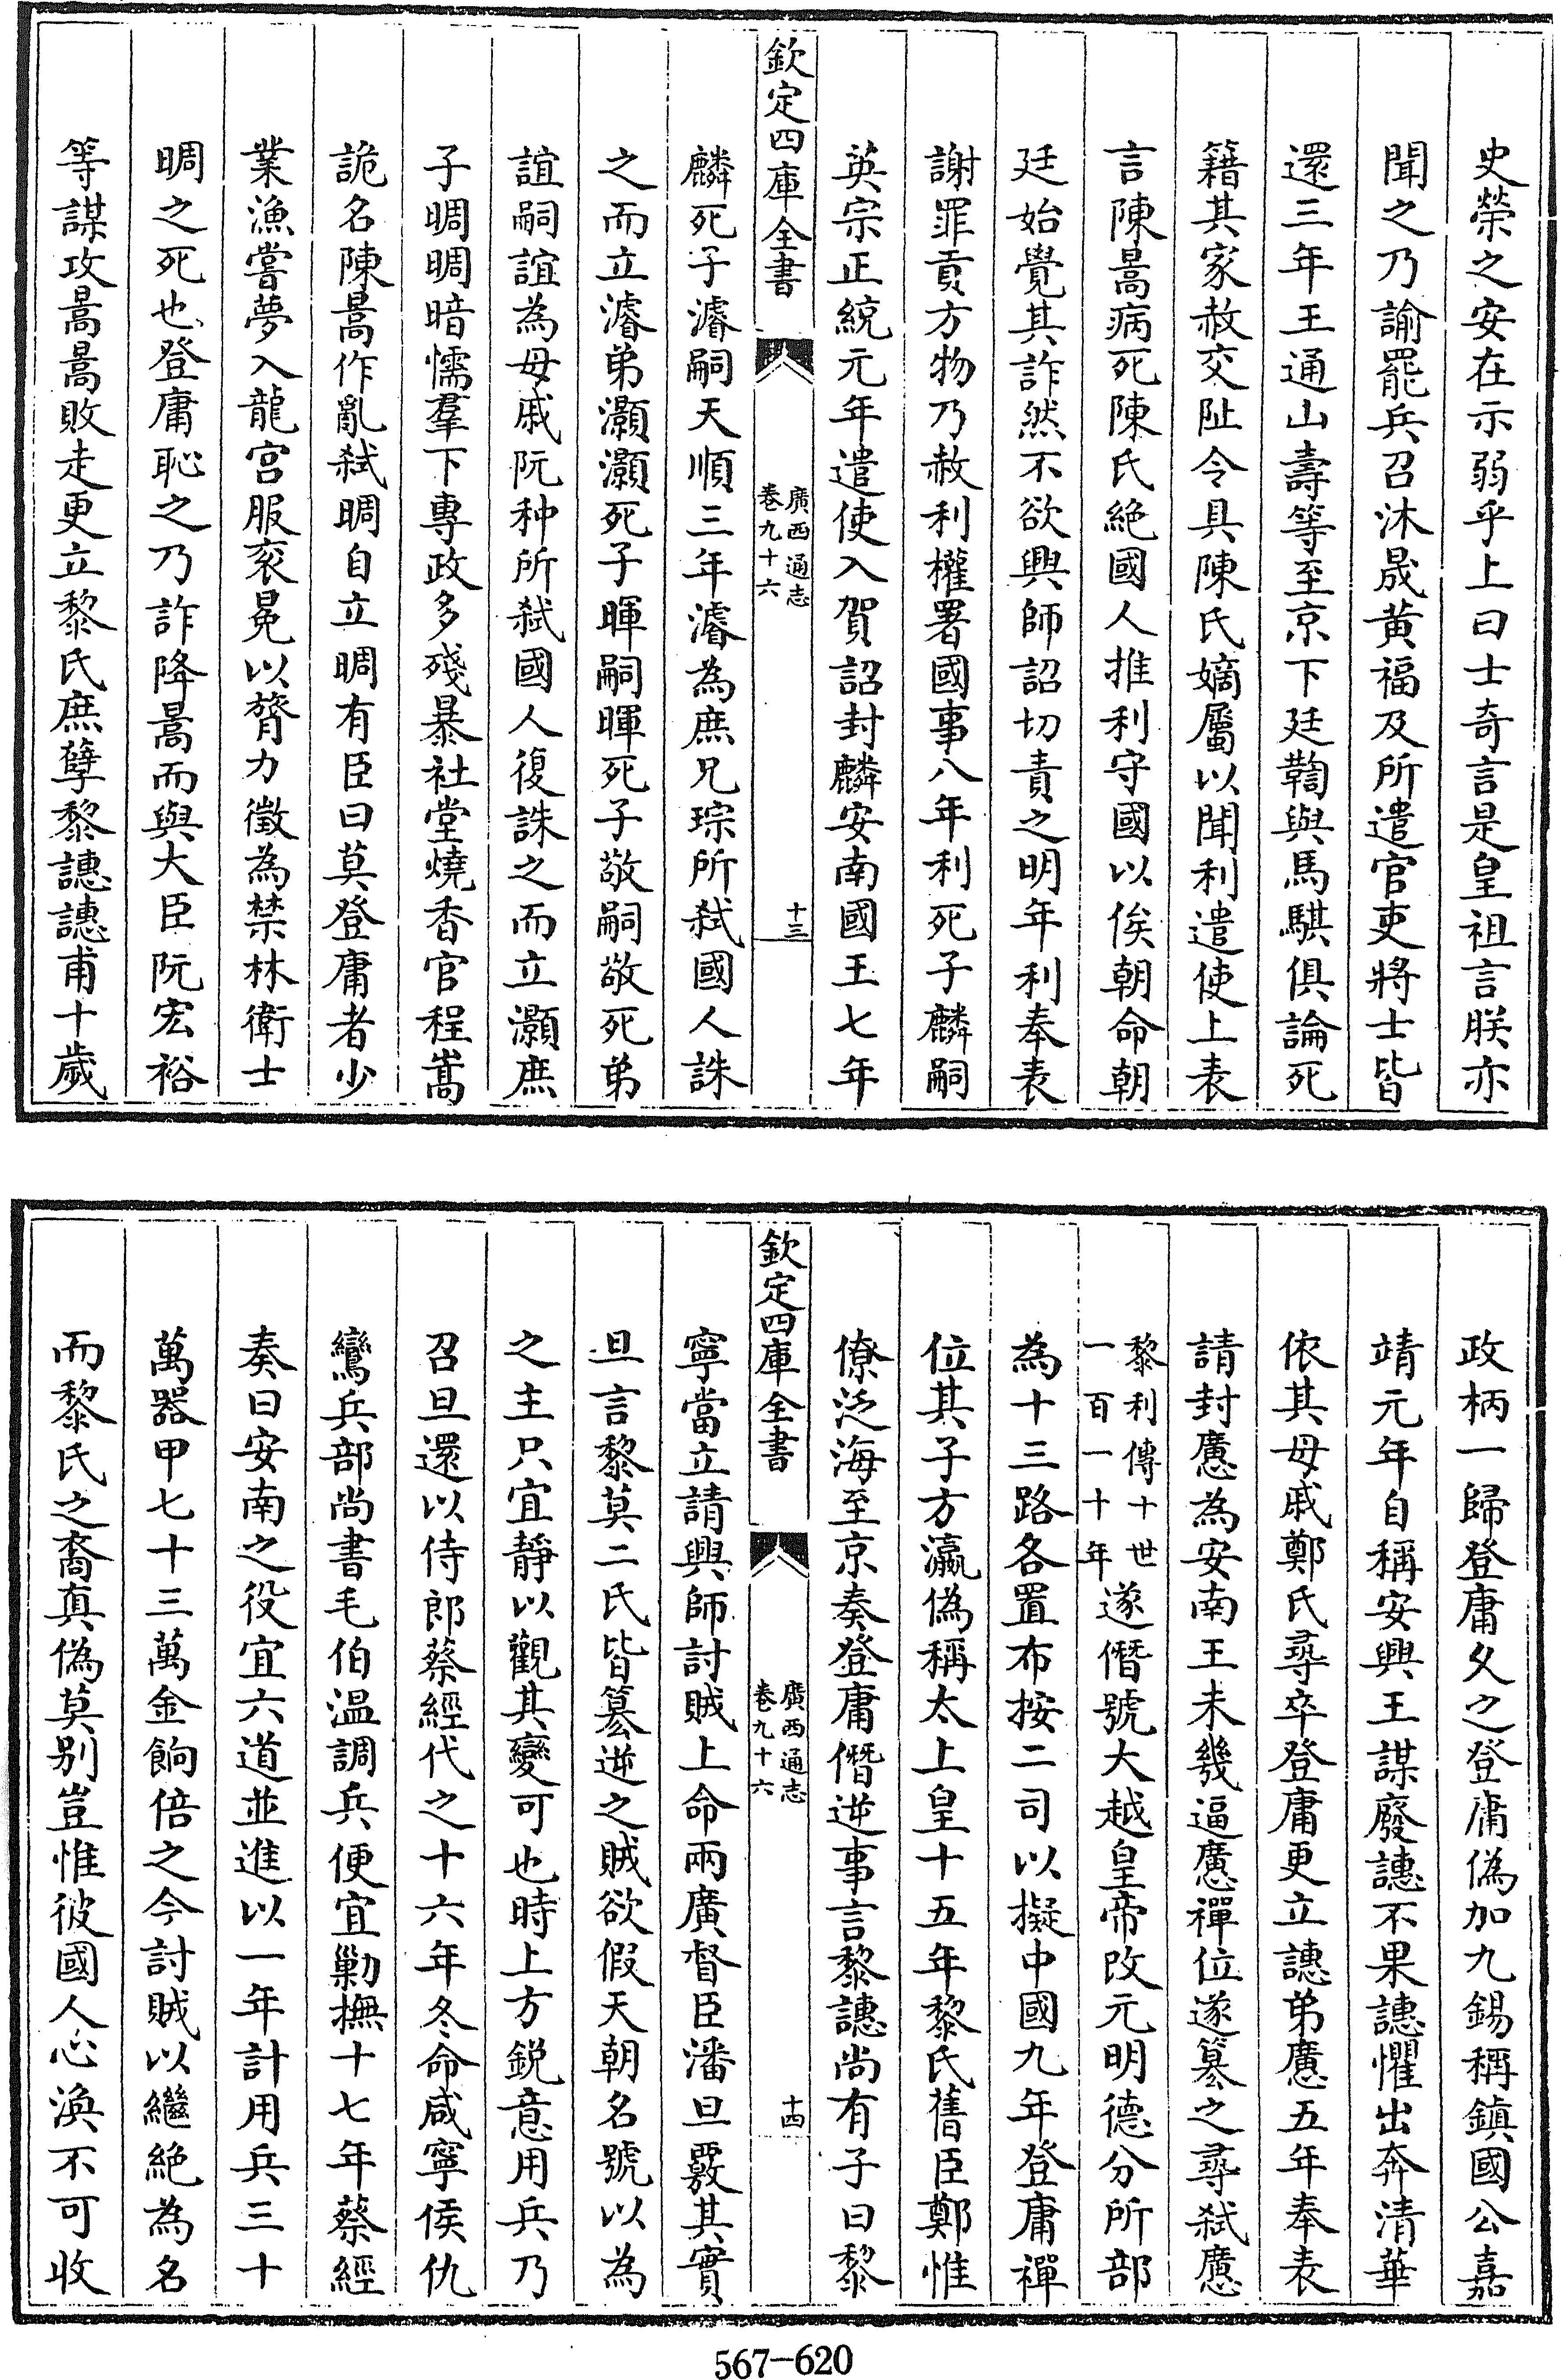 史榮之安在示弱乎上曰士奇言是皇祖言朕亦
聞之乃諭罷兵召沐晟黄福及所遣官吏將士皆
還三年王通山壽等至京下廷鞫與馬騏俱論死
籍其家赦交阯令具陳氏嫡屬以聞利遣使上表
言陳暠病死陳氏絶國人推利守國以俟朝命朝
廷始覺其詐然不欲興師詔切責之明年利奉表
謝罪貢方物乃赦利權署國事八年利死子麟嗣
英宗正統元年遣使入賀詔封麟安南國王七年
欽定四庫全書
廣西通志
卷九十六
十三
麟死子濬嗣天順三年濬為庶兄琮所弑國人誅
之而立濬弟灝灝死子暉嗣暉死子敬嗣敬死弟
誼嗣誼為母戚阮种所弑國人復誅之而立灝庶
子晭晭暗懦羣下專政多殘暴社堂燒香官程嵩
詭名陳暠作亂弑晭自立晭有臣曰莫登庸者少
業漁嘗夢入龍宫服衮冕以膂力徵為禁林衛士
晭之死也登庸恥之乃詐降暠而與大臣阮宏裕
等謀攻暠暠敗走更立黎氏庶孽黎譓譓甫十歲
政柄一歸登庸久之登庸偽加九錫稱鎮國公嘉
靖元年自稱安興王謀廢譓不果譓懼出奔清華
依其母戚鄭氏尋卒登庸更立譓弟懬五年奉表
請封懬為安南王未幾逼懬禪位遂篡之尋弑懬
黎利傳十世
一百一十年
遂僭號大越皇帝改元明德分所部
為十三路各置布按二司以擬中國九年登庸禪
位其子方瀛偽稱太上皇十五年黎氏舊臣鄭惟
僚泛海至京奏登庸僭逆事言黎譓尚有子曰黎
欽定四庫全書
廣西通志
卷九十六
十四
寧當立請興師討賊上命兩廣督臣潘旦覈其實
旦言黎莫二氏皆篡逆之賊欲假天朝名號以為
之主只宜靜以觀其變可也時上方鋭意用兵乃
召旦還以侍郎蔡經代之十六年冬命咸寧侯仇
鸞兵部尚書毛伯温調兵便宜勦撫十七年蔡經
奏曰安南之役宜六道並進以一年計用兵三十
萬器甲七十三萬金餉倍之今討賊以繼絶為名
而黎氏之裔真偽莫别豈惟彼國人心渙不可收
567-620